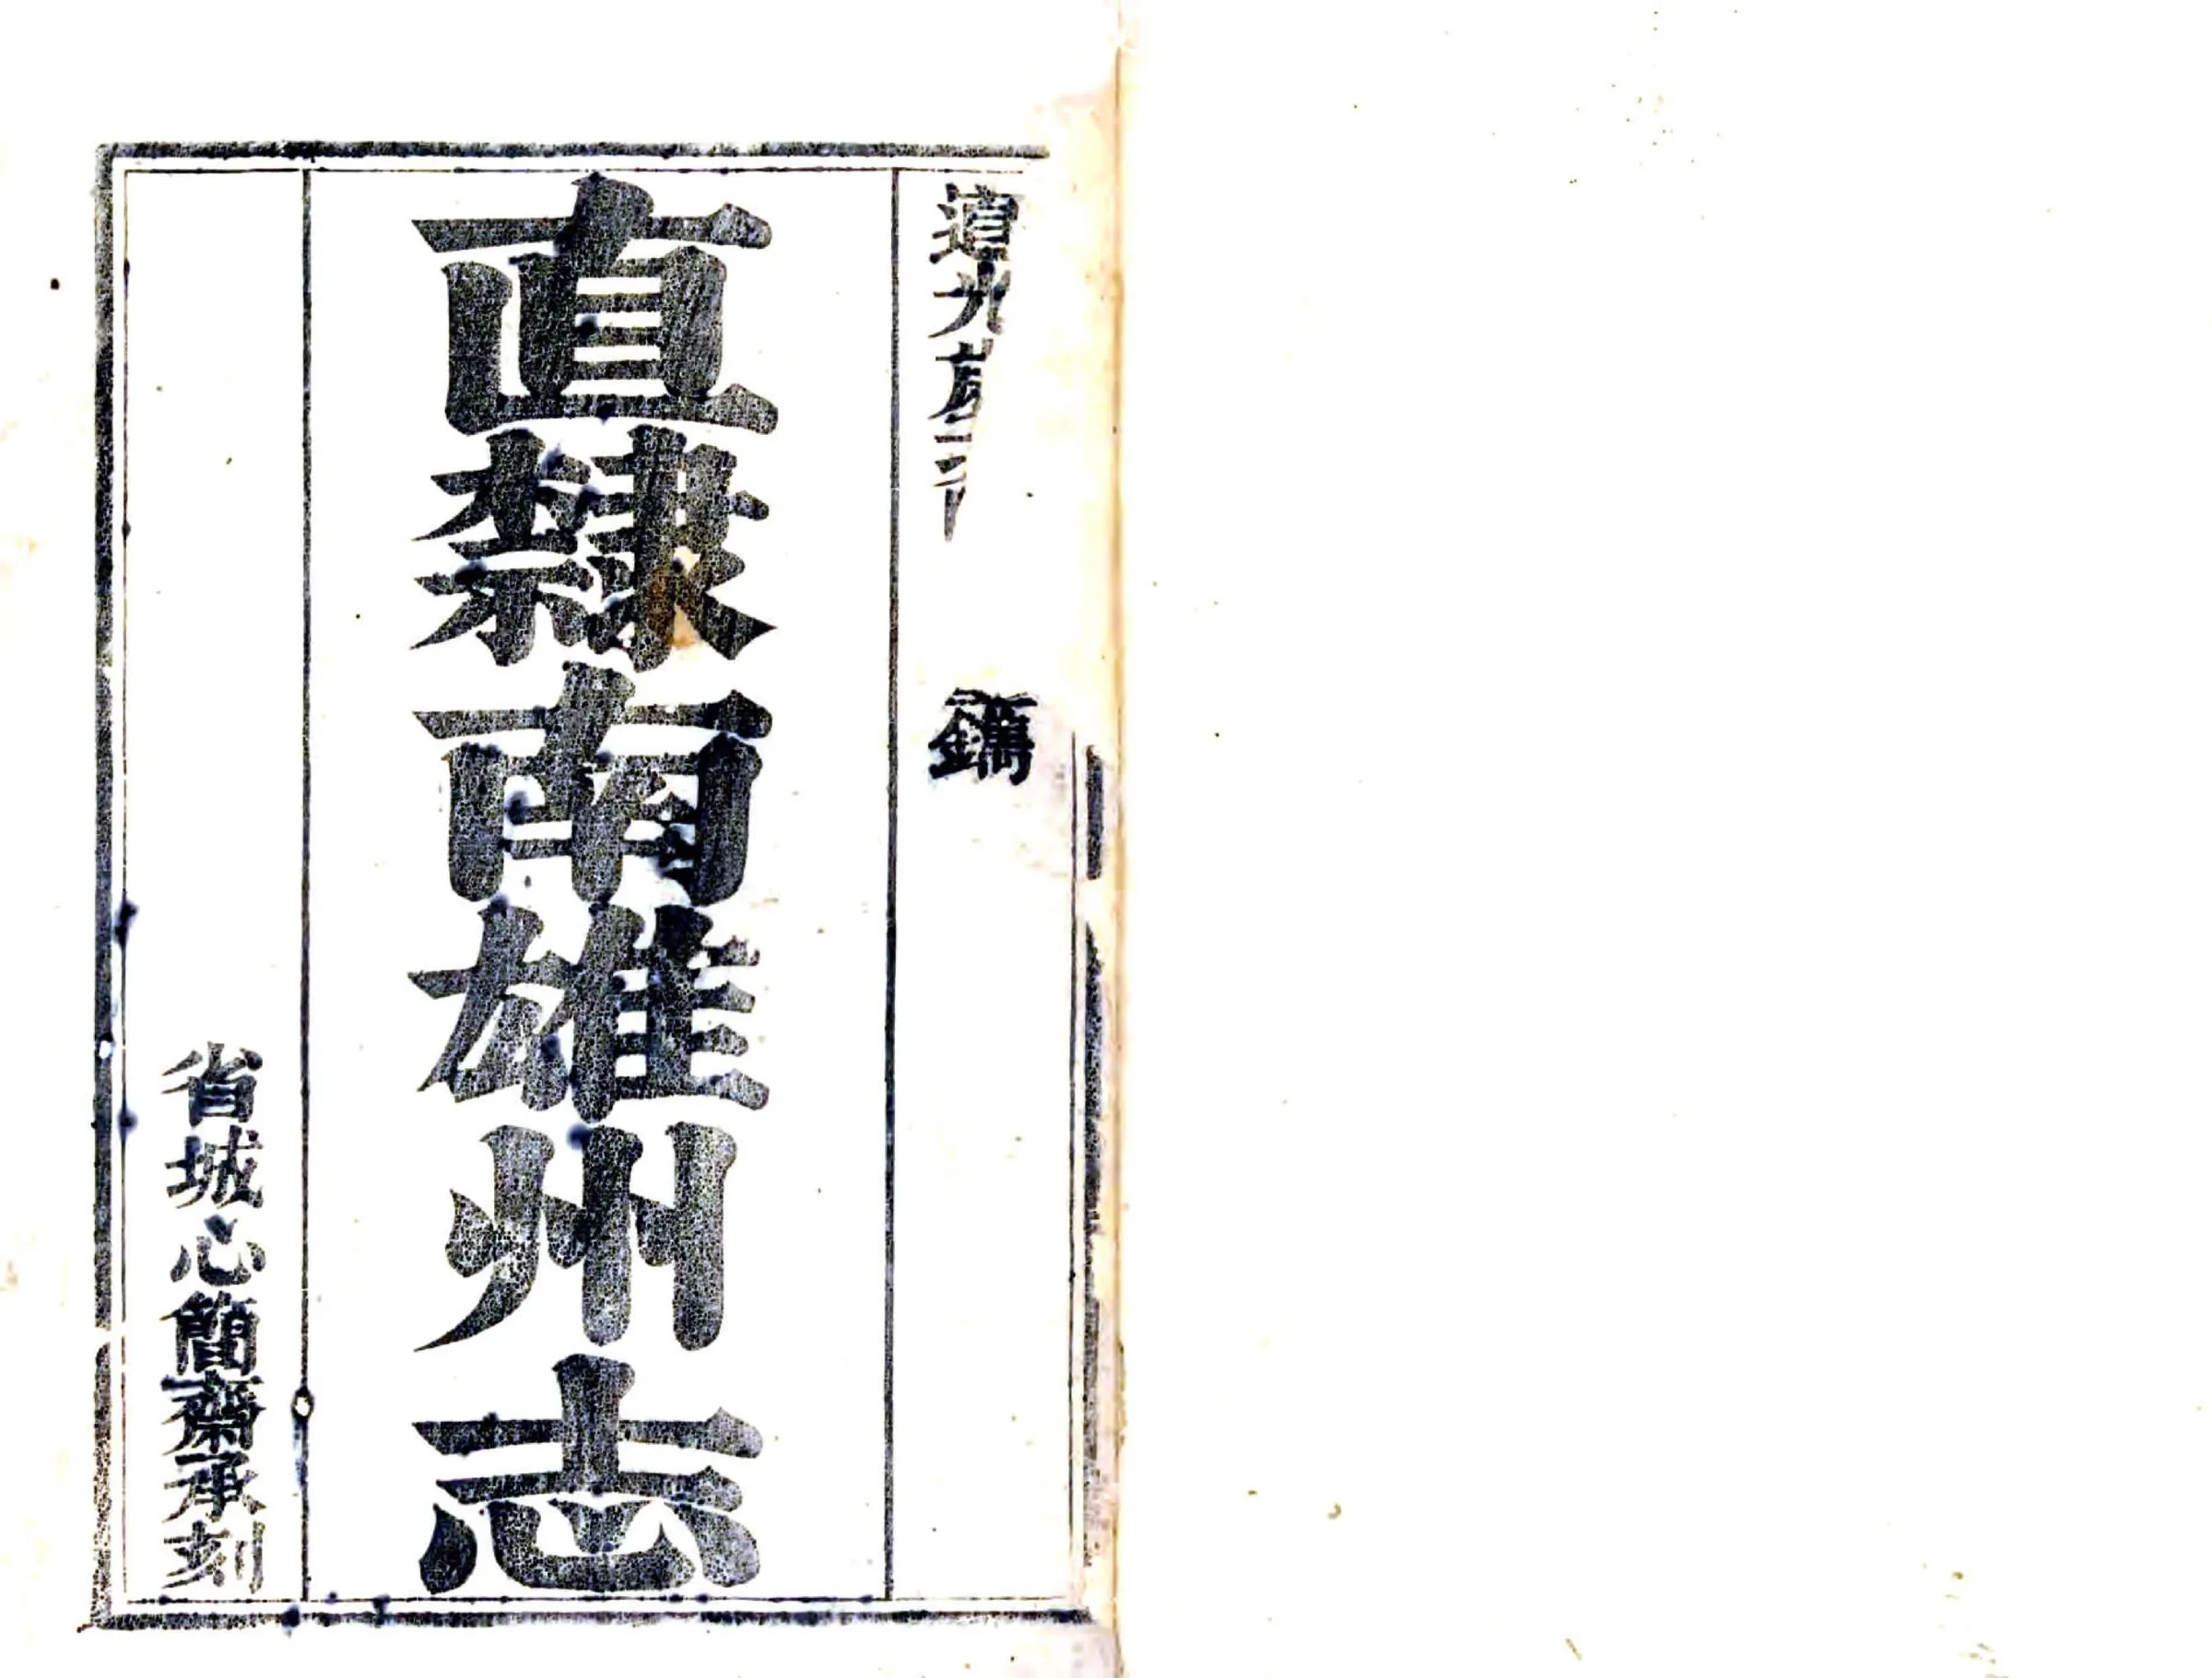 道光鐫
直隷南雄州志
省城心簡齋承刻